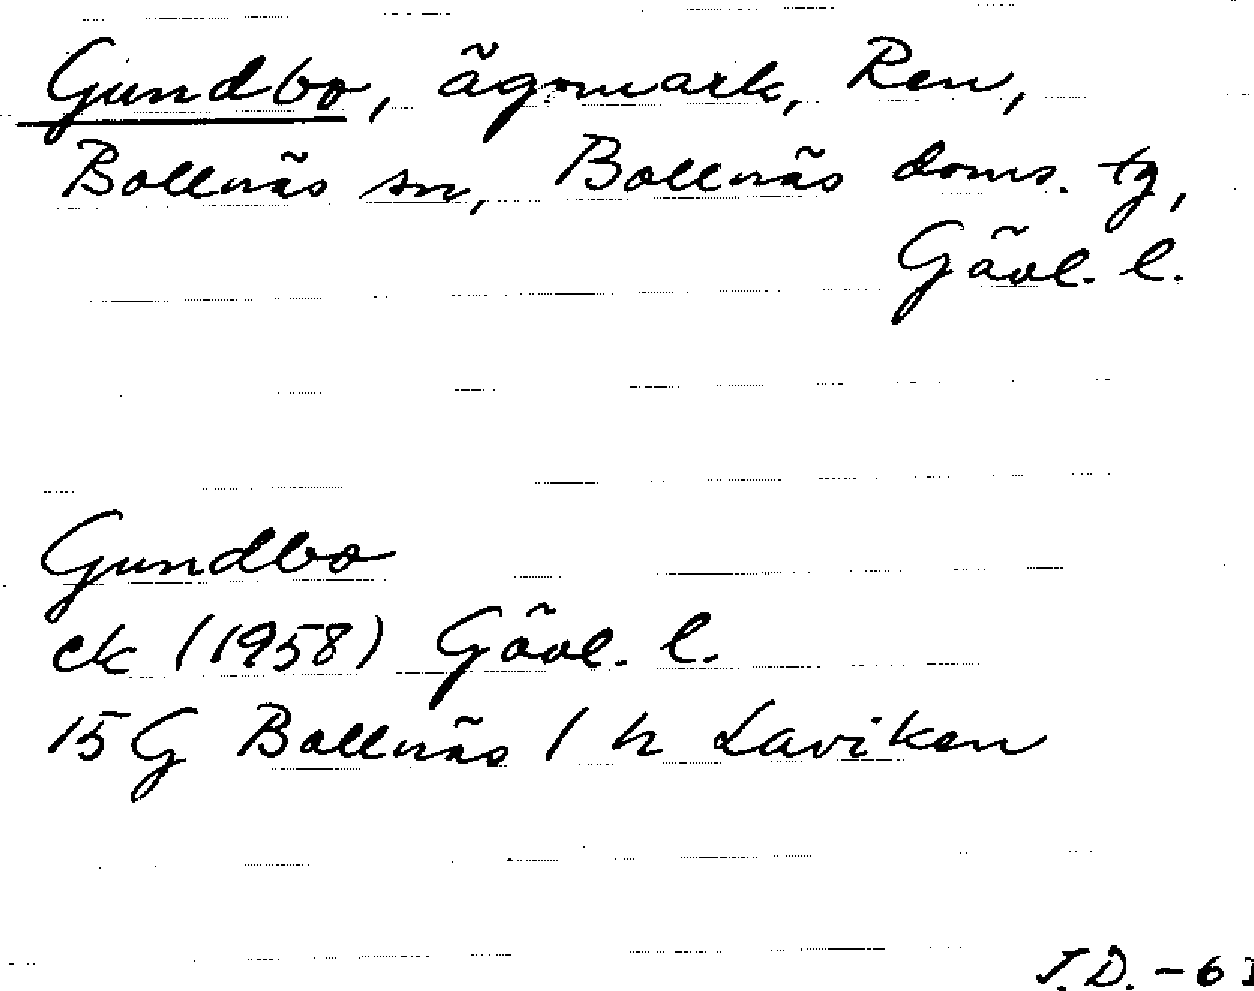 Gundbo, ägomark, Ren,
Bollnäs sn, Bollnäs doms. tg,
Gävl. l.
Gundbo
ek (1958) Gävl. l.
15 G Bollnäs 1 h Laviken
J.D. - 61